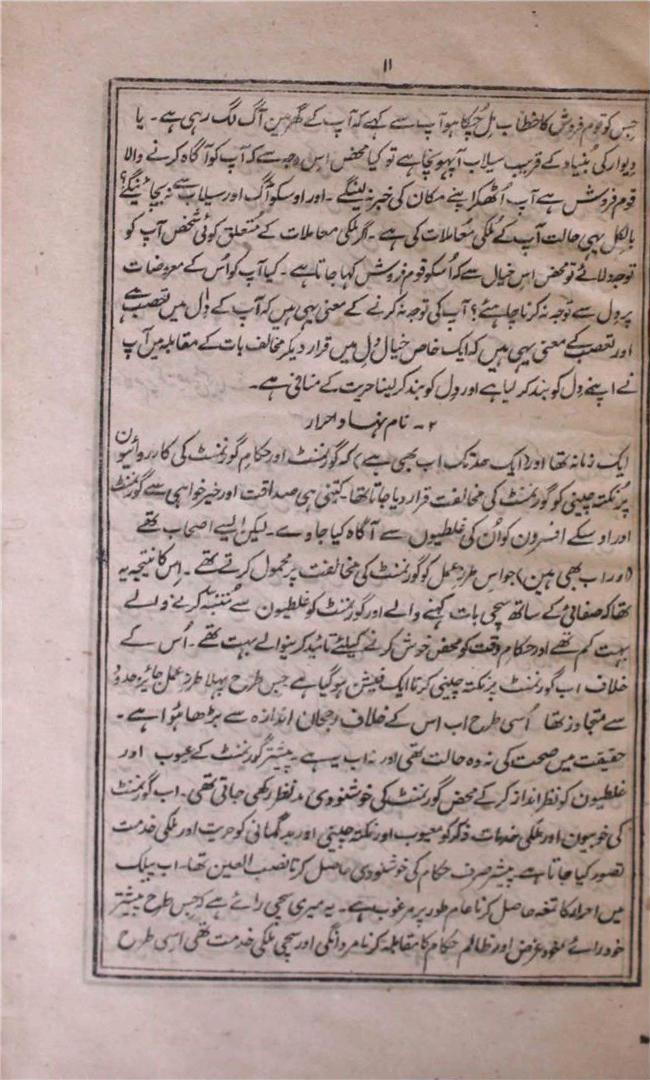 ۱۱
جس کو قوم فروش کا خطاب مِل چُکا ہو آپ سے کہے کہ آپ کے گھر مین آگ لگ رہی ہے۔ یا
دیوار کی بُنیاد کے قریب سیلاب آپہونچا ہے تو کیا محض اِس وجہ سے کہ آپ کو آگاہ کرنے والا
قوم فروش ہے آپ اُٹھکر اپنے مکان کی خبر نہ لینگے۔ اور اوسکو آگ اور سیلاب سے نہ بچائینگے؟
بالکل یہی حالت آپ کے مُلکی مُعاملات کی ہے۔ اگر ملکی معاملات کے مُتعلق کوئی شخص آپ کو
توجہ دلائے تو محض اِس خیال سے کہ اُسکو قوم فروش کہا جاتا ہے۔ کیا آپ کو اُس کے معروضات
پر دِل سے توجہ نہ کرنا چاہئے؟ آپ کی توجہ نہ کرنے کے معنی یہی ہیں کہ آپ کے دِل میں تعصب ہے
اور تعصب کے معنی یہی ہیں کہ ایک خاص خیال دِل میں قرار دیکر مخالف بات کے مقابلہ میں آپ
نے اپنے دِل کو بند کر لیا ہے اور دِل کو بند کر لینا حریت کے منافی ہے۔
۲۔ نام نہاد احرار
ایک زمانہ تھا اور (ایک حد تک اب بھی ہے) کہ گورنمنٹ اور حکام گورنمنٹ کی کارروائیون
پر نکتہ چینی کو گورنمنٹ کی مخالفت قرار دیا جاتا تھا۔ کتنی ہی صداقت اور خیر خواہی سے گورنمنٹ
اور اوسکے افسرون کو اُن کی غلطیوں سے آگاہ کیا جاوے۔ لیکن ایسے اصحاب تھے
(اور اب بھی ہین) جو اس طرزِ عمل کو گورنمنٹ کی مخالفت پر محمول کرتے تھے۔ اِس کا نتیجہ یہ
تھا کہ صفائی کے ساتھ سچی بات کہنے والے اور گورنمنٹ کو غلطیون سے مُتنبہ کرنے والے
بہت کم تھے اور حکام وقت کو محض خوش کرنے کیلئے تائید کرنیوالے بہت تھے۔ اُس کے
خلاف اب گورنمنٹ پر نکتہ چینی کرنا ایک فیشن ہو گیا ہے جس طرح پہلا طرزِ عمل جائز حدود
سے متجاوز تھا اُسی طرح اب اس کے خلاف رجحان اندازہ سے بڑھا ہُوا ہے۔
حقیقت میں صحت کی نہ وہ حالت تھی اور نہ اب یہ ہے۔ پیشتر گورنمنٹ کے عیوب اور
غلطیون کو نظر انداز کر کے محض گورنمنٹ کی خوشنودی مدنظر رکھی جاتی تھی۔ اب گورنمنٹ
کی خوبیون اور ملکی خدمات کے ذکر کو معیوب اور نکتہ چینی اور بدگمانی کو حریت اور ملکی خدمت
تصور کیا جاتا ہے۔ پیشتر صرف حکام کی خوشنودی حاصل کرنا نصب العین تھا۔ اب پبلک
میں احرار کا تمغہ حاصل کرنا عام طور پر مرغوب ہے۔ یہ میری سچی رائے ہے کہ جس طرح پیشتر
خود رائے خود غرض اور ظالم حکام کا مقابلہ کرنا مردانگی اور سچی ملکی خدمت تھی اسی طرح